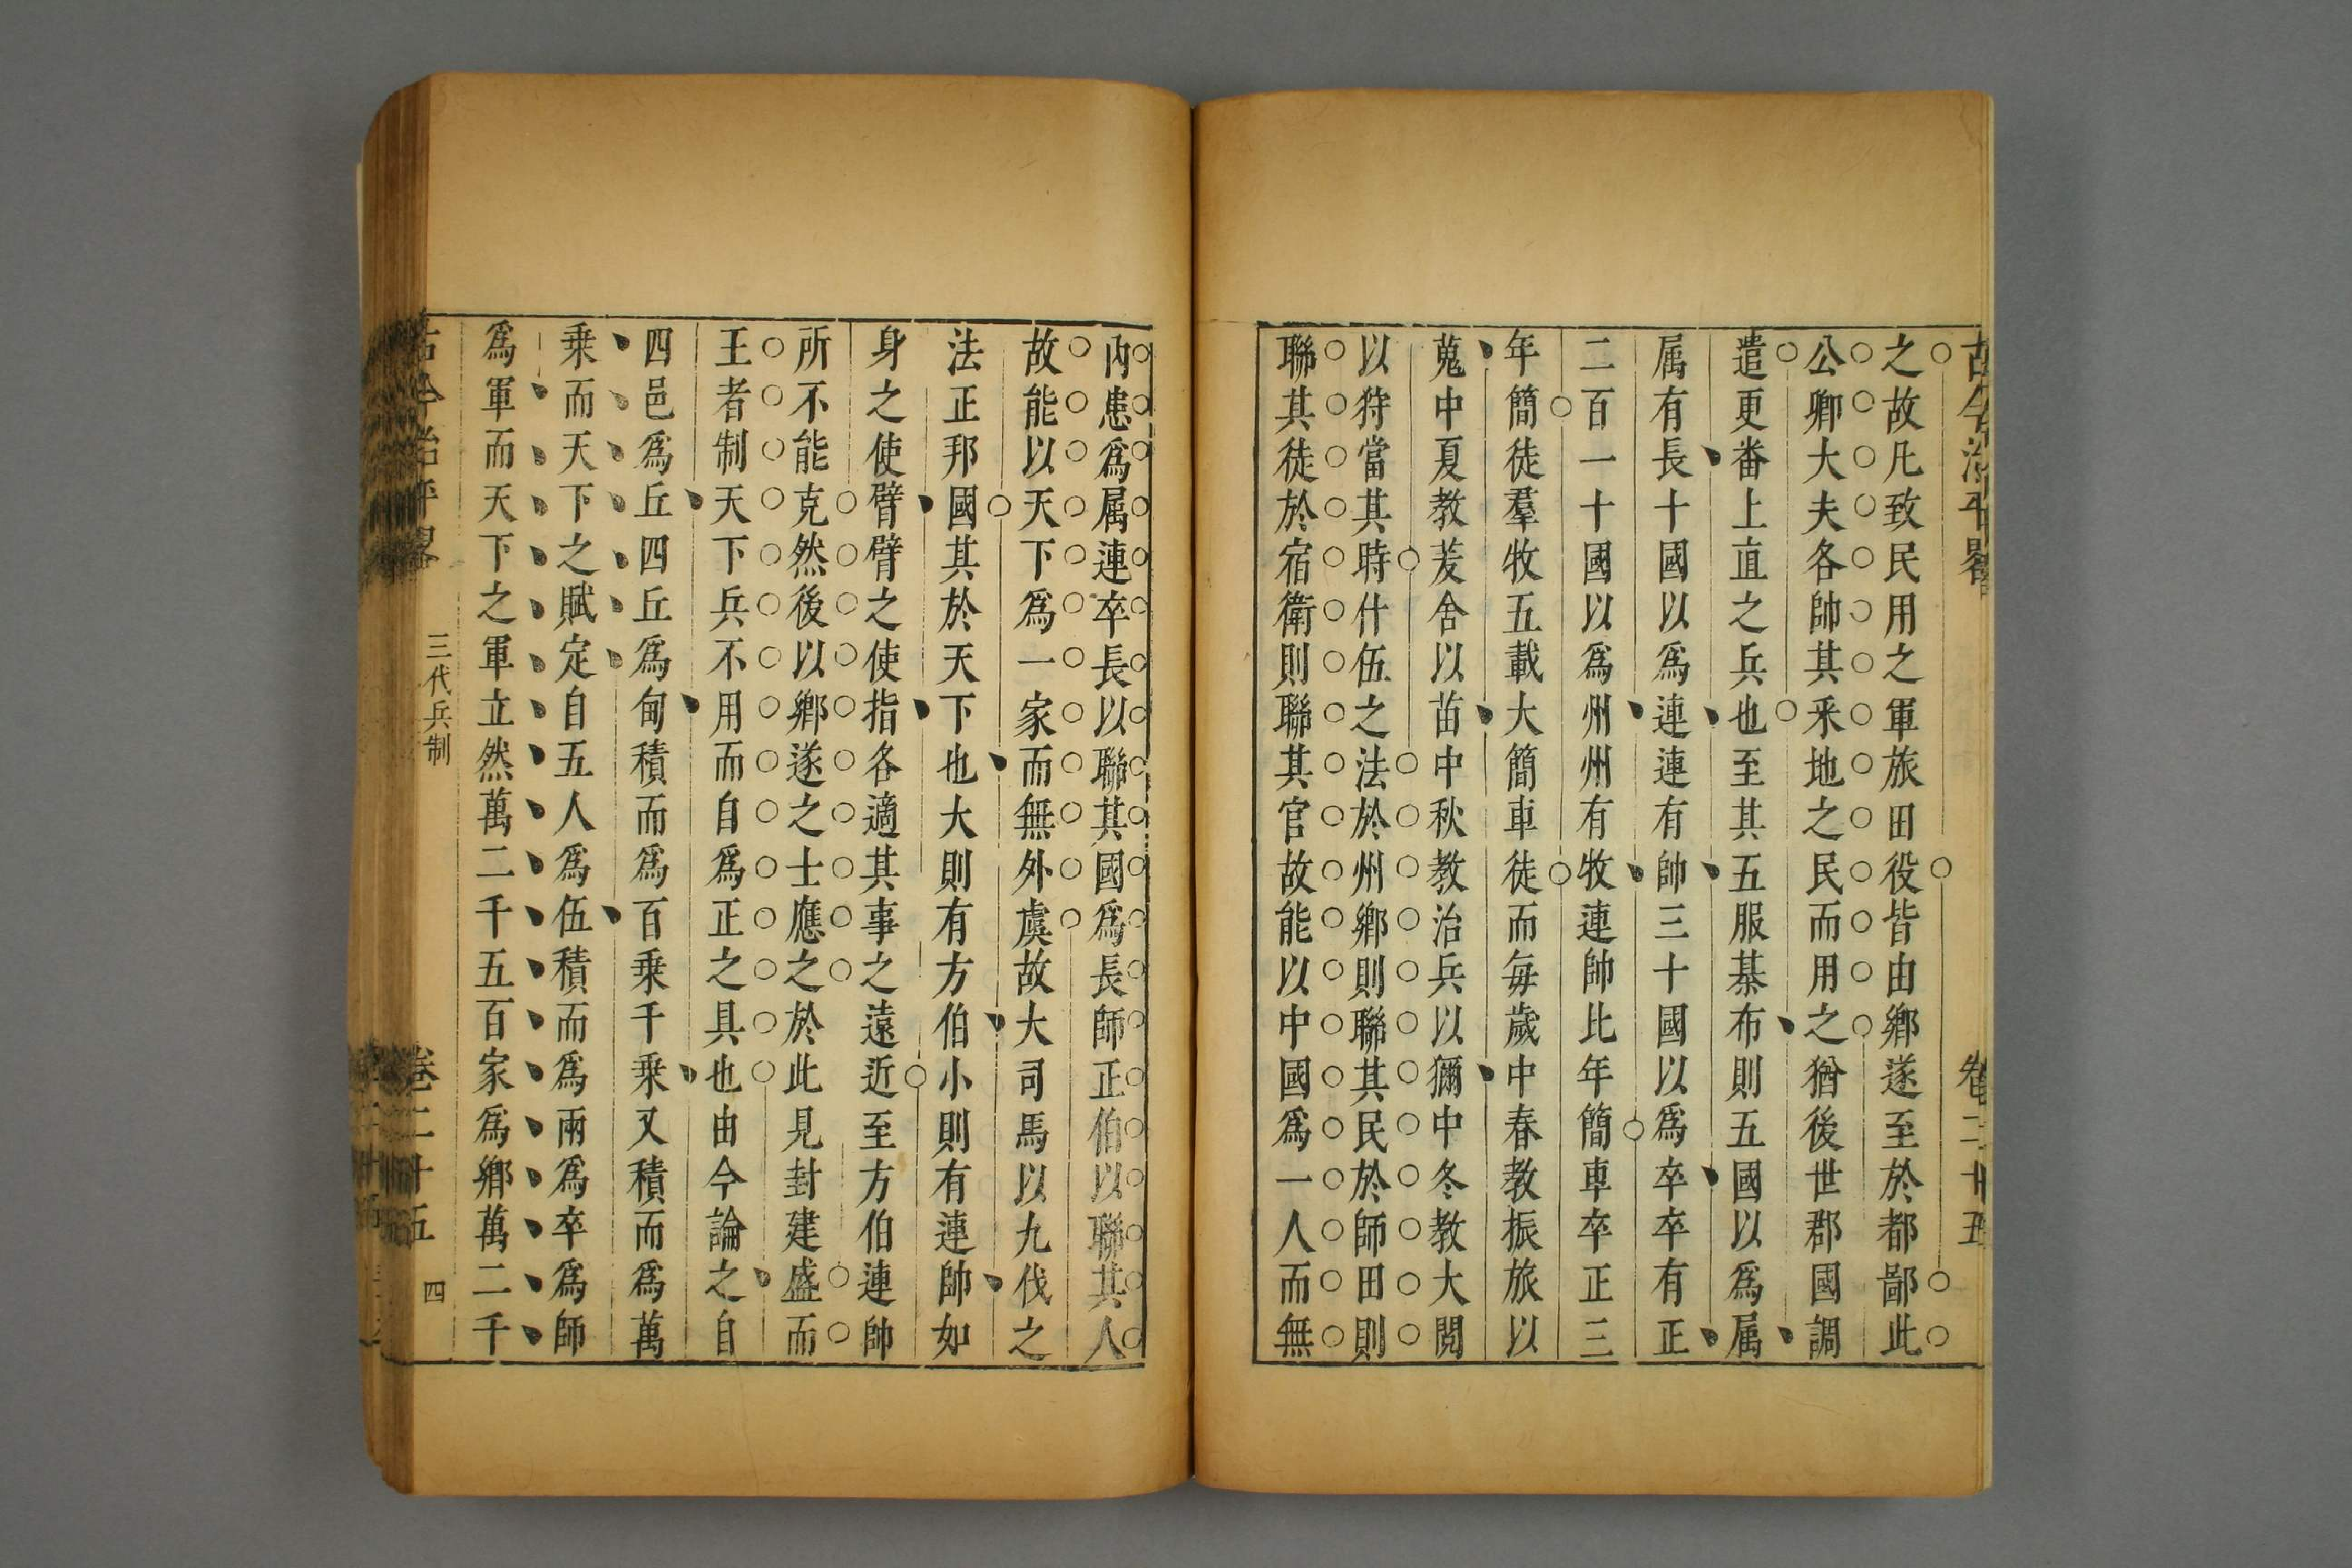 古今治平畧
卷二十五
之故凡致民用之軍旅田役皆由鄉遂至於都鄙此
公卿大夫各帥其采地之民而用之猶後世郡國調
遣更番上直之兵也至其五服棊布則五國以爲属
属有長十國以爲連連有帥三十國以爲卒卒有正
二百一十國以爲州州有牧連帥比年簡車卒正三
年簡徒羣牧五載大簡車徒而每歲中春教振旅以
蒐中夏教茇舍以苗中秋教治兵以獮中冬教大閱
以狩當其時什伍之法於州鄉則聯其民於師田則
聯其徒於宿衛則聯其官故能以中國爲一人而無
內患爲属連卒長以聯其國爲長師正伯以聯其人
故能以天下爲一家而無外虞故大司馬以九伐之
法正邦國其於天下也大則有方伯小則有連帥如
身之使臂臂之使指各適其事之遠近至方伯連帥
所不能克然後以鄉遂之士應之於此見封建盛而
王者制天下兵不用而自爲正之具也由今論之自
四邑爲丘四丘爲甸積而爲百乘千乘又積而爲萬
乘而天下之賦定自五人爲伍積而爲兩爲卒爲師
爲軍而天下之軍立然萬二千五百家爲鄉萬二千
古今治平畧
三代兵制
卷二十五
四